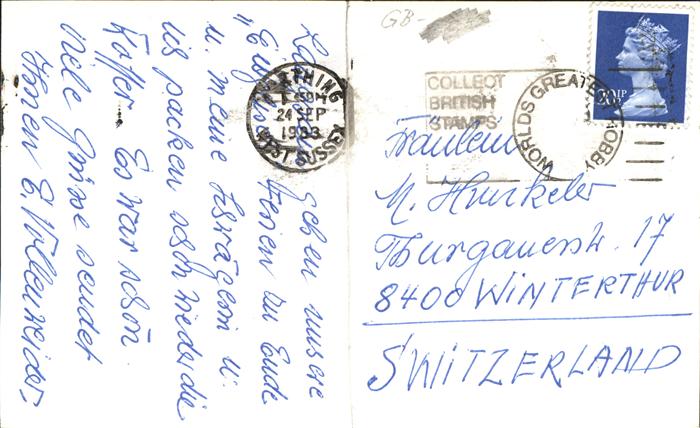 Leider gehen unsere
Ferien zu Ende
u. meine Schwägerin u.
ich packen schon wieder die
Koffer. Es war schön
viele Grüsse sendet
Ihnen E. Vollenweider.
GB-
WORTHING
24 SEP
1983
WEST SUSSEX
COLLECT
BRITISH
STAMPS
WORLDS GREATEST HOBBY
20½P
Fräulein
M. Hunkeler
Thurgauerstr. 17
8400 WINTERTHUR
SWITZERLAND